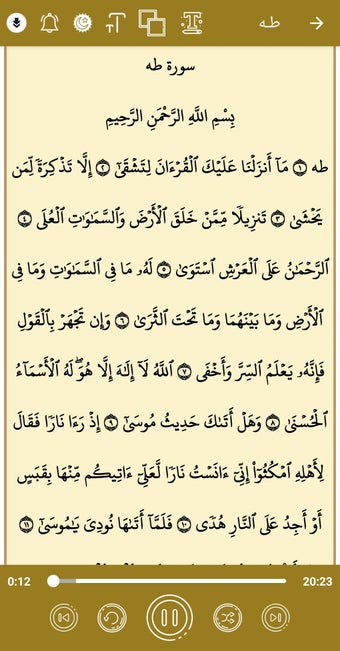 طه
سورة طه
بِسْمِ اللَّهِ الرَّحْمَنِ الرَّحِيمِ
طه ١ مَآ أَنزَلْنَا عَلَيْكَ ٱلْقُرْءَانَ لِتَشْقَىٰٓ ٢ إِلَّا تَذْكِرَةً لِّمَن
يَخْشَىٰ ٣ تَنزِيلًا مِّمَّنْ خَلَقَ ٱلْأَرْضَ وَٱلسَّمَٰوَٰتِ ٱلْعُلَى ٤
ٱلرَّحْمَٰنُ عَلَى ٱلْعَرْشِ ٱسْتَوَىٰ ٥ لَهُۥ مَا فِى ٱلسَّمَٰوَٰتِ وَمَا فِى
ٱلْأَرْضِ وَمَا بَيْنَهُمَا وَمَا تَحْتَ ٱلثَّرَىٰ ٦ وَإِن تَجْهَرْ بِٱلْقَوْلِ
فَإِنَّهُۥ يَعْلَمُ ٱلسِّرَّ وَأَخْفَى ٧ ٱللَّهُ لَآ إِلَٰهَ إِلَّا هُوَ ۖ لَهُ ٱلْأَسْمَآءُ
ٱلْحُسْنَىٰ ٨ وَهَلْ أَتَىٰكَ حَدِيثُ مُوسَىٰٓ ٩ إِذْ رَءَا نَارًا فَقَالَ
لِأَهْلِهِ ٱمْكُثُوٓا۟ إِنِّىٓ ءَانَسْتُ نَارًا لَّعَلِّىٓ ءَاتِيكُم مِّنْهَا بِقَبَسٍ
أَوْ أَجِدُ عَلَى ٱلنَّارِ هُدًى ١٠ فَلَمَّآ أَتَىٰهَا نُودِىَ يَٰمُوسَىٰٓ ١١
0:12
20:23